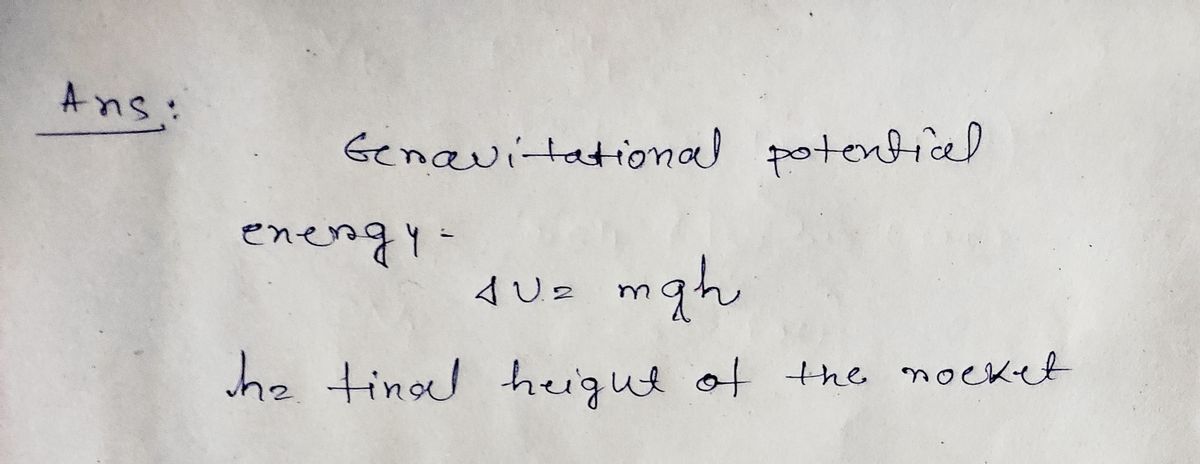 Ans:
Gravitational potential
energy-
ΔU = mgh
h = final height of the rocket